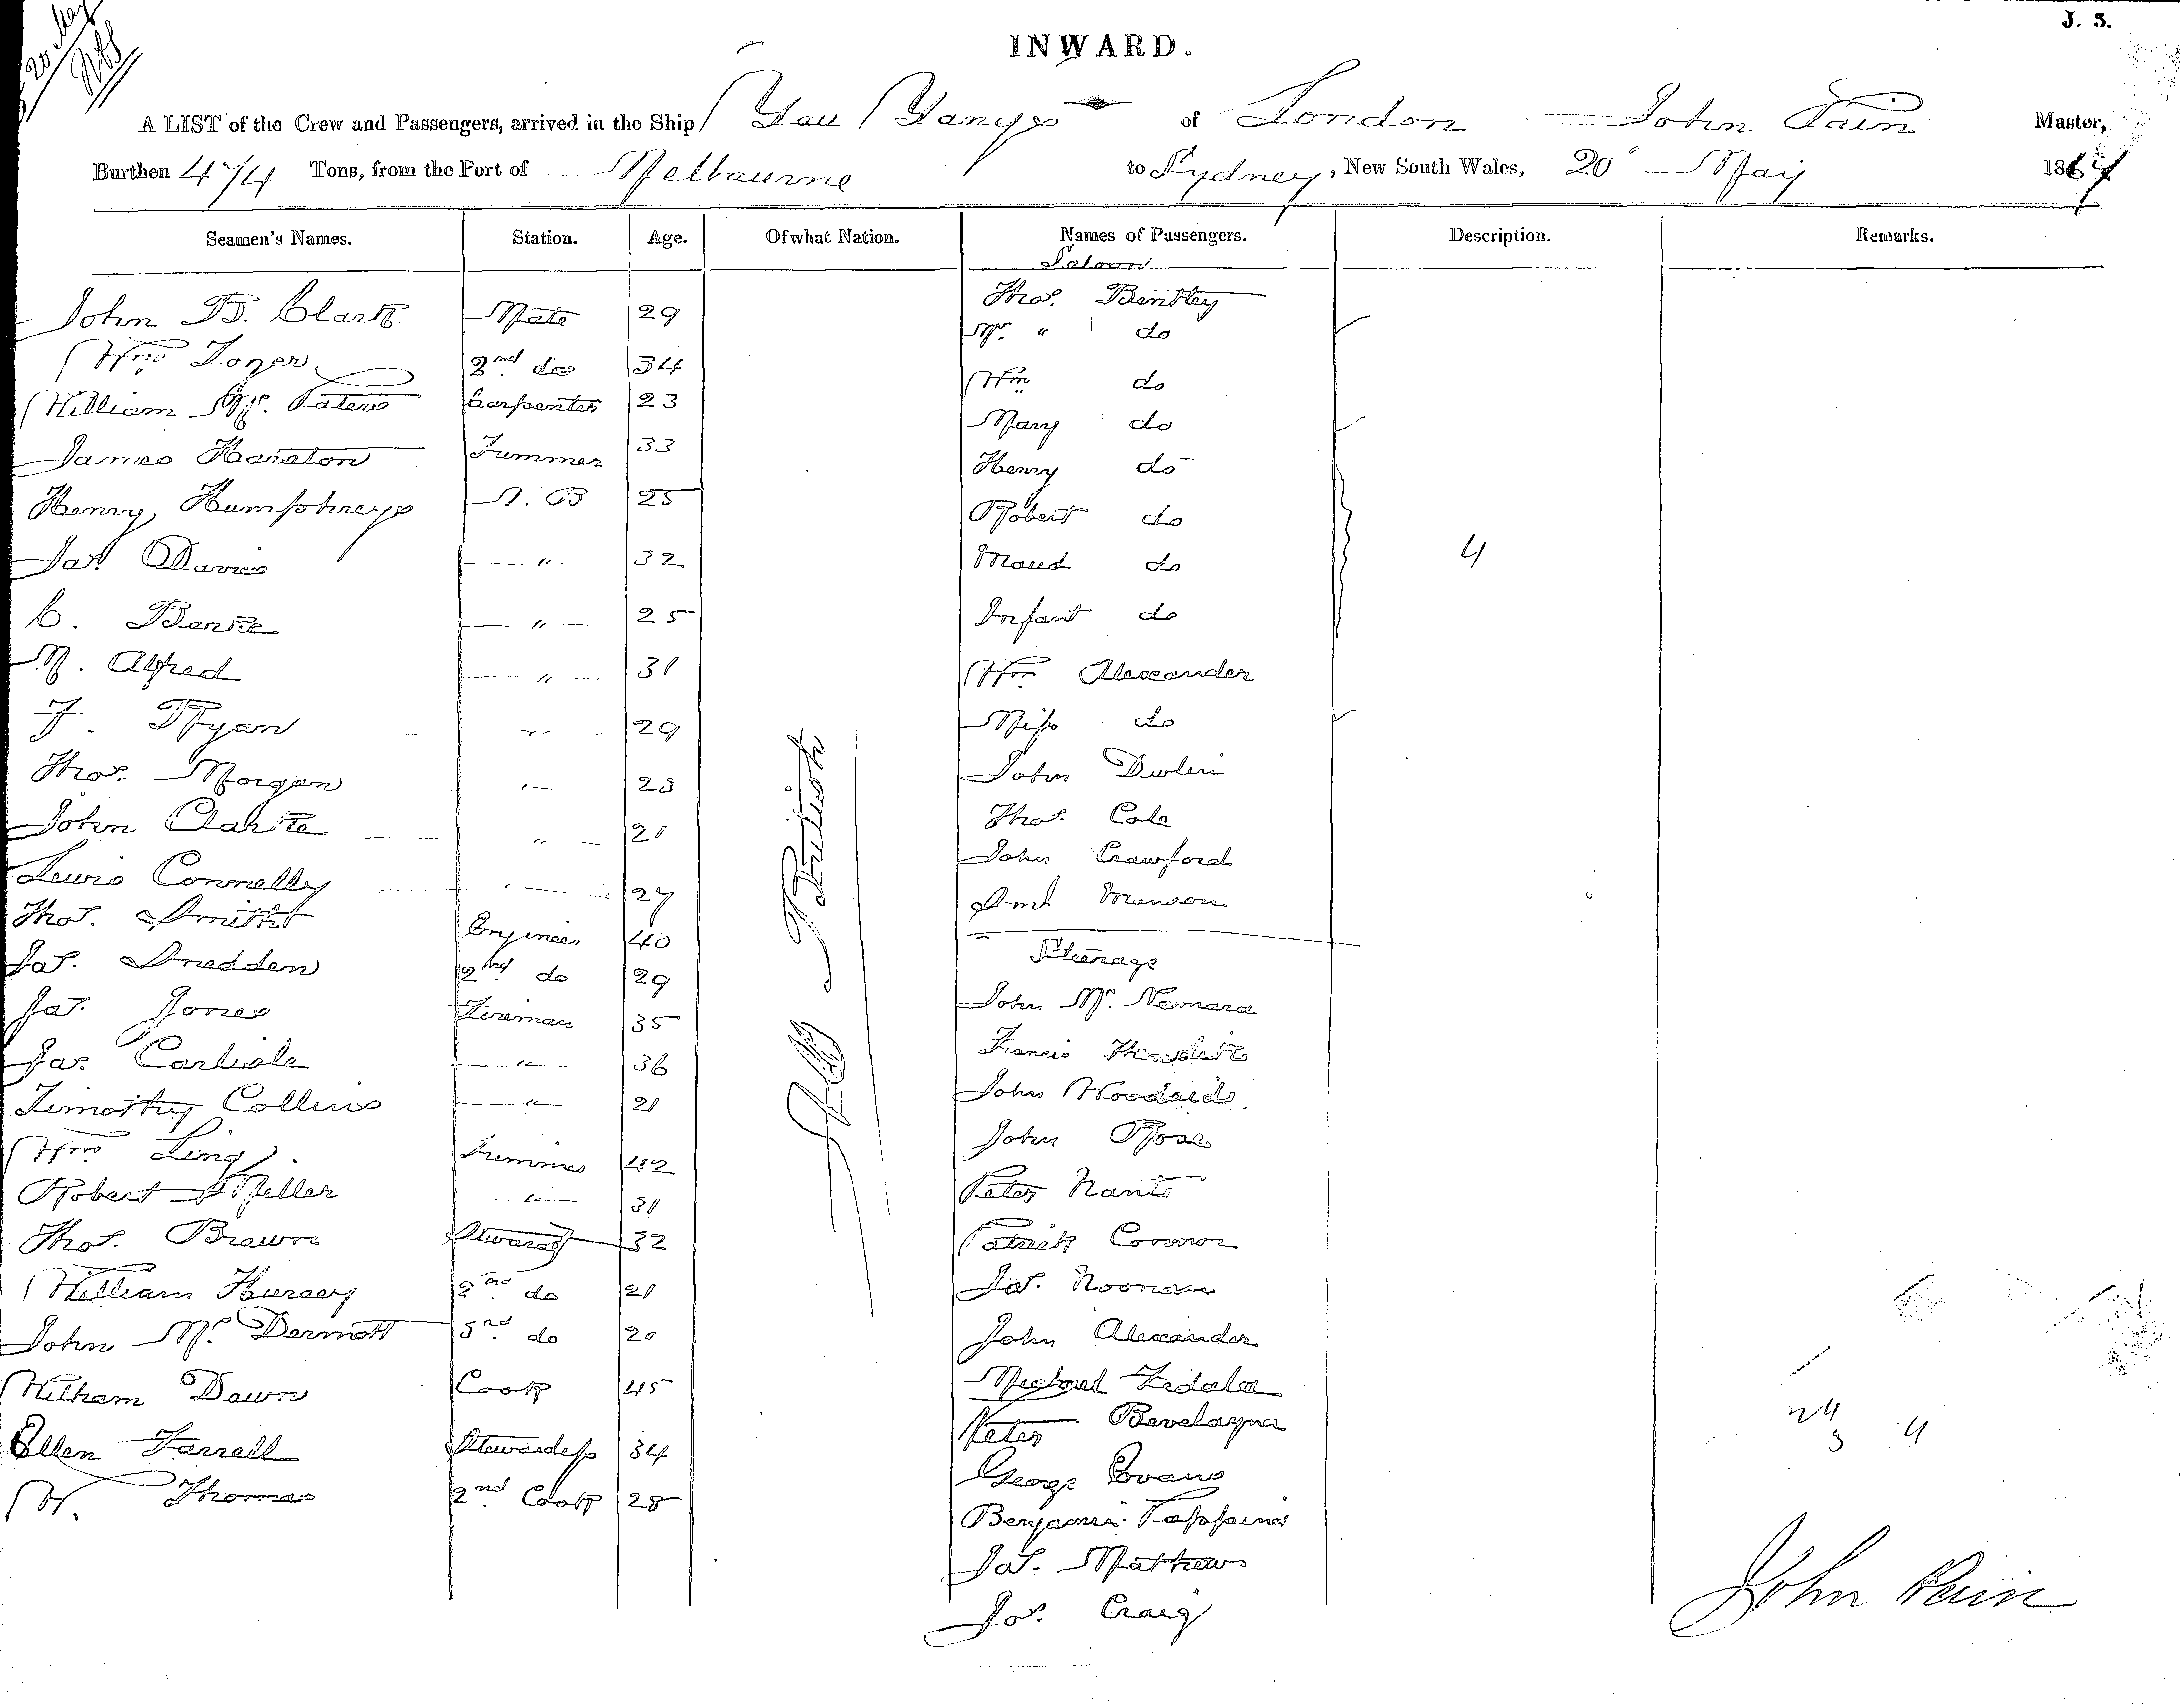 J. 5.
INWARD.
20 May
A LIST of the Crew and Passengers, arrived in the Ship You Yangs of London John Pain Master,
Burthen 474 Tons, from the Port of Melbourne to Sydney, New South Wales, 20 May 1867
Seamen's Names. Station. Age. Of what Nation. Names of Passengers. Description. Remarks.
Saloon
John B. Clark Mate 29 Thos. Bentley
Mrs. " do
Wm 2nd do 34 Wm do
William Mc. Carpenter 23 Mary do
James 33 Henry do
Henry Humphreys A. B 25 Robert do
Jas. Davies " 32 Maud do 4
C. " 25 Infant do
M. Alfred " 31 Wm Alexander
J. Ryan " 29 Miss do
Thos. Morgan " 28 John
John Clarke " 21 Thos. Cole
Lewis Connelly " 27 John Crawford
Thos. Smith Engineer 40 Munson
Jas. 2nd do 29 Steerage
Jas. Jones Fireman 35 John Mc. Namara
Jas Carlisle " 36 Francis
Timothy Collins " 21 John Woodards
Wm Ling Trimmer 42 John Ross
Robert Miller " 31 Peter
Thos. Brown Steward 32 Patrick Connor
William 2nd do 21 Jas. Noonan
John Mc. Dermott 3rd do 20 John Alexander
William Dawn Cook 45 Michael
Peter
Ellen Farrell Stewardess 34 George Evans
W. Thomas 2nd Cook 28 Benjamin
Jas. Mathews
Jos. Craig
All British
24
3 4
John Pain